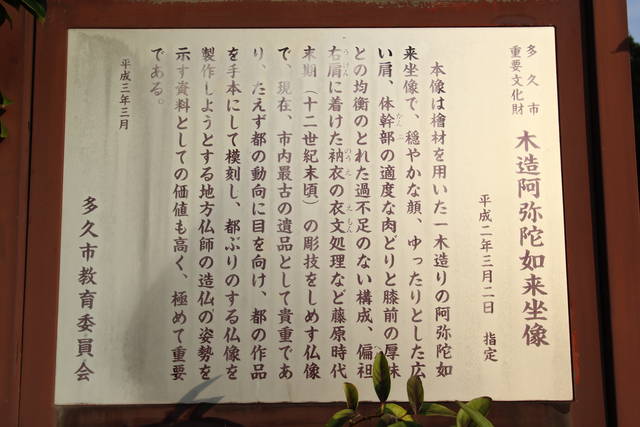 多久市
重要文化財
木造阿弥陀如来坐像
平成二年三月二日 指定
本像は檜材を用いた一木造りの阿弥陀如
来坐像で、穏やかな顔、ゆったりとした広
い肩、体幹部の適度な肉どりと膝前の厚味
との均衡のとれた過不足のない構成、偏袒
右肩に着けた衲衣の衣文処理など藤原時代
末期（十二世紀末頃）の彫技をしめす仏像
で、現在、市内最古の遺品として貴重であ
り、たえず都の動向に目を向け、都の作品
を手本にして模刻し、都ぶりのする仏像を
製作しようとする地方仏師の造仏の姿勢を
示す資料としての価値も高く、極めて重要
である。
平成三年三月
多久市教育委員会